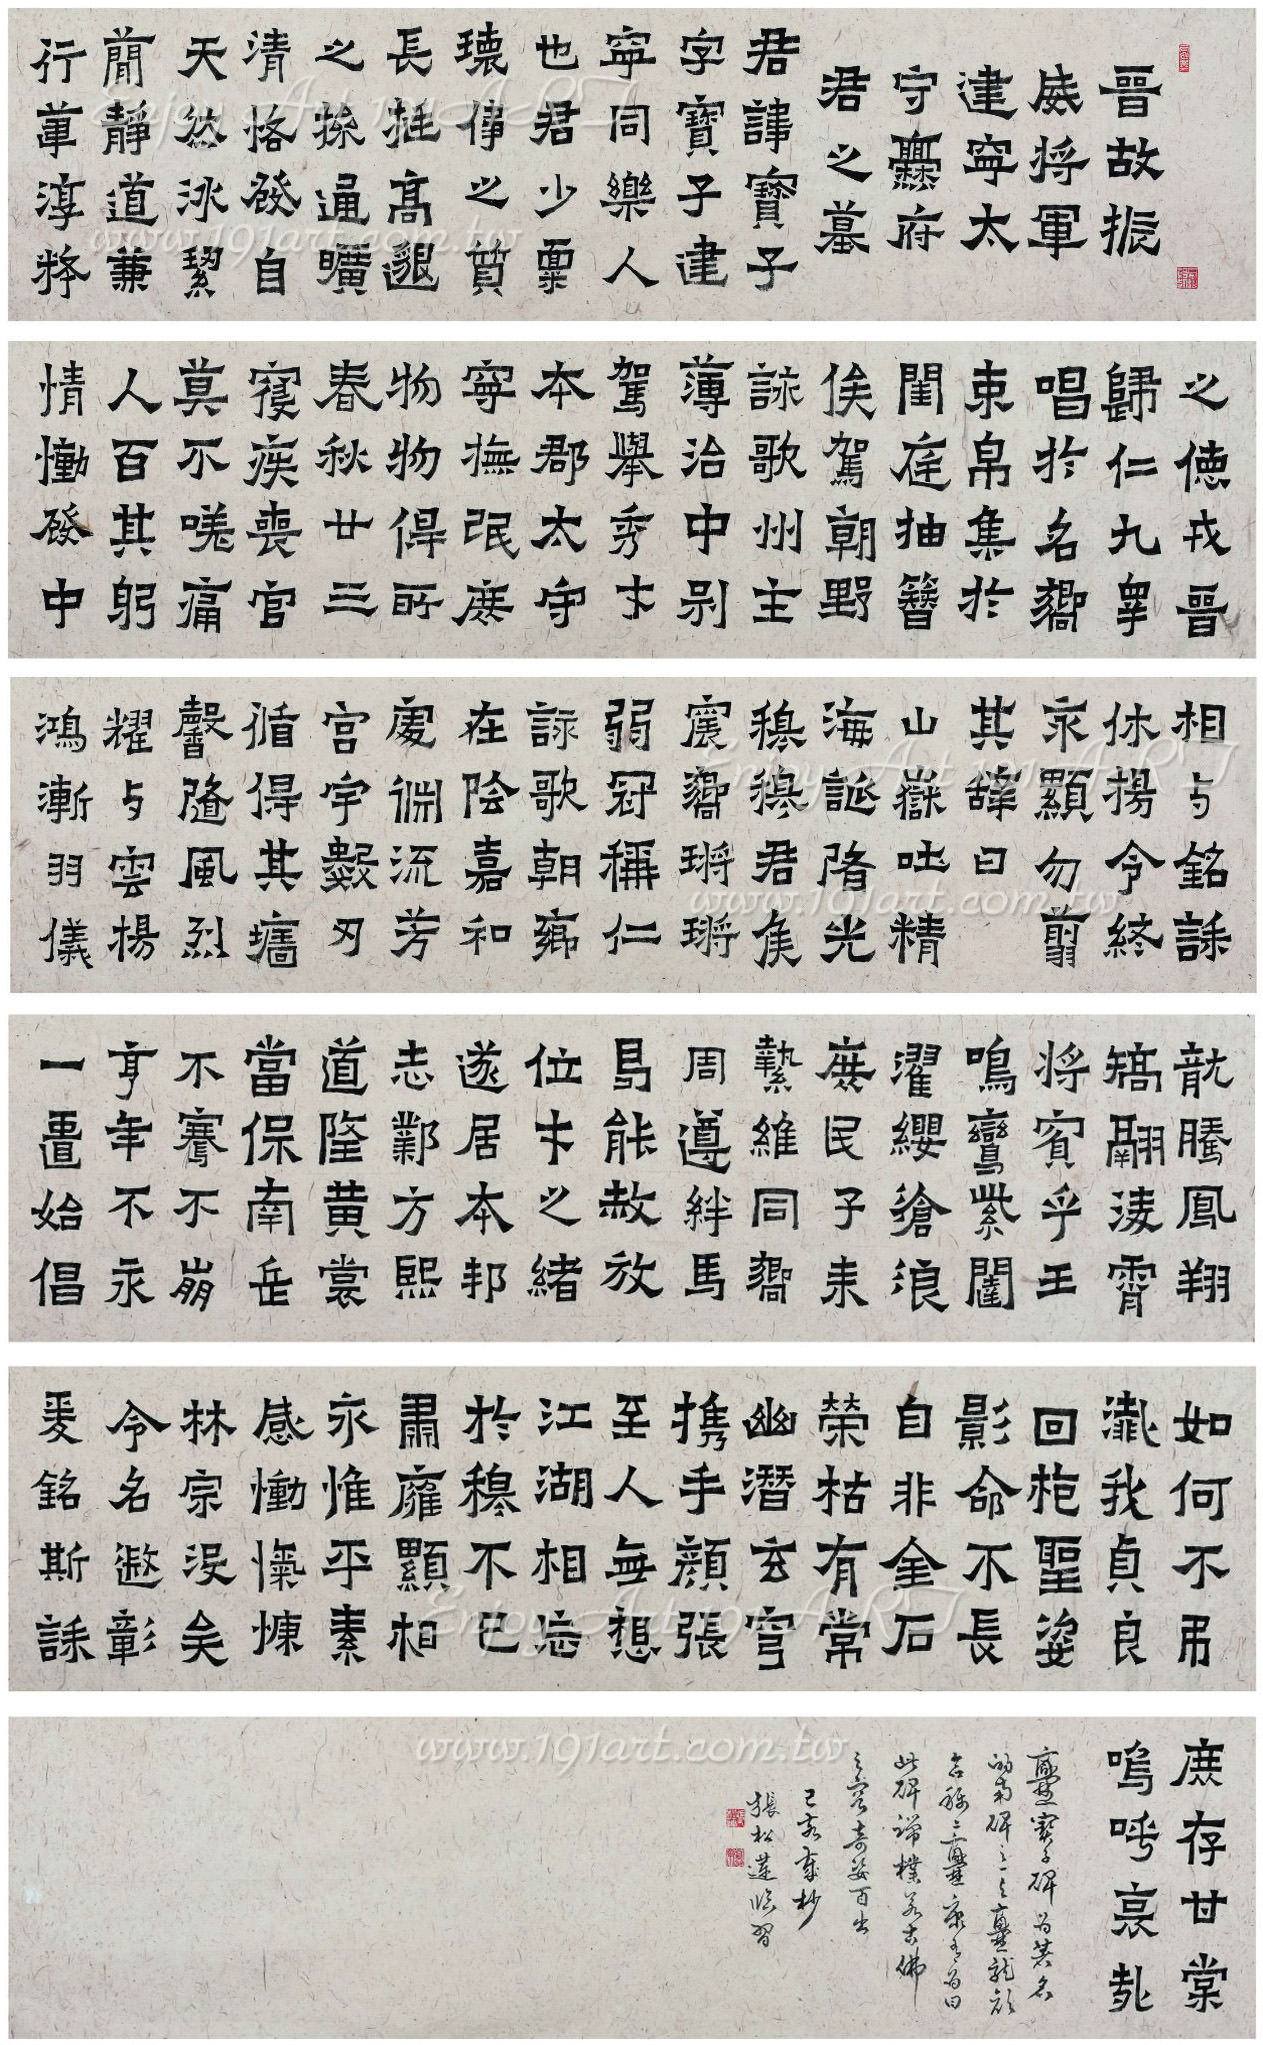 晉故振
威將軍
建寧太
守爨府
君之墓
君諱寶子
字寶子建
寧同樂人
也君少稟
瓌偉之質
長挺高邈
之操通曠
清恪發自
天然冰絜
蕳靜道兼
行葦淳粹
之德戎晉
歸仁九皋
唱於名嚮
束帛集於
閨庭抽簪
俟駕朝野
詠歌州主
薄治中別
駕舉秀才
本郡太守
寧撫氓庶
物物得所
春秋廿三
寢疾喪官
莫不嗟痛
人百其躬
情慟發中
相与銘誄
休揚令終
永顯勿翦
其辭曰
山嶽吐精
海誕陏光
穆穆君侯
震嚮鏘鏘
弱冠稱仁
詠歌朝鄉
在陰嘉和
處淵流芳
宮宇數仞
循得其墻
馨隨風烈
耀与雲揚
鴻漸羽儀
龍騰鳳翔
矯翮凌霄
將賓乎王
鳴鸞紫闥
濯纓滄浪
庶民子來
縶維同嚮
周遵絆馬
曷能赦放
位才之緒
遂居本邦
志鄴方熙
道隆黃裳
當保南岳
不騫不崩
享年不永
一匱始倡
如何不弔
殲我貞良
回抱聖姿
影命不長
自非金石
榮枯有常
幽潛玄穹
携手顏張
至人無想
江湖相忘
於穆不已
肅雍顯相
永惟平素
感慟愾慷
林宗沒矣
令名遐彰
爰銘斯誄
庶存甘棠
嗚呼哀哉
爨寶子碑為著名
的南碑之一与爨龍顏
合稱二爨康有為曰
此碑端樸若古佛
之容奇姿百出
己亥歲杪
張松蓮臨習
Enjoy Art 101 ART
www.191art.com.tw
Enjoy Art 101 ART
www.191art.com.tw
Enjoy Art 101 ART
www.191art.com.tw